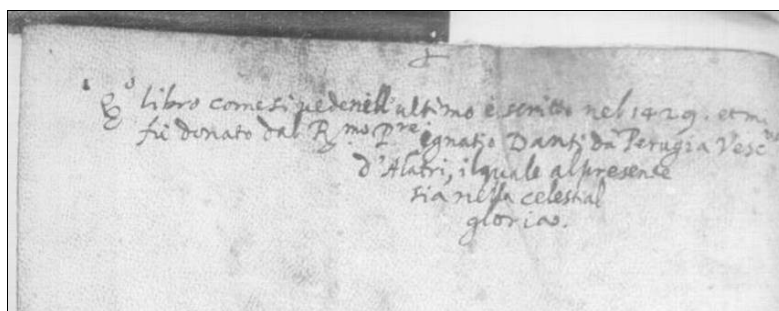 Qº libro come si vede nell'ultimo è scritto nel 1429. et mi
fù donato dal R.mo P.re Egnatio Danti da Perugia Vesc.vo
d'Alatri, il quale al presente
sia nella celestial
gloria.